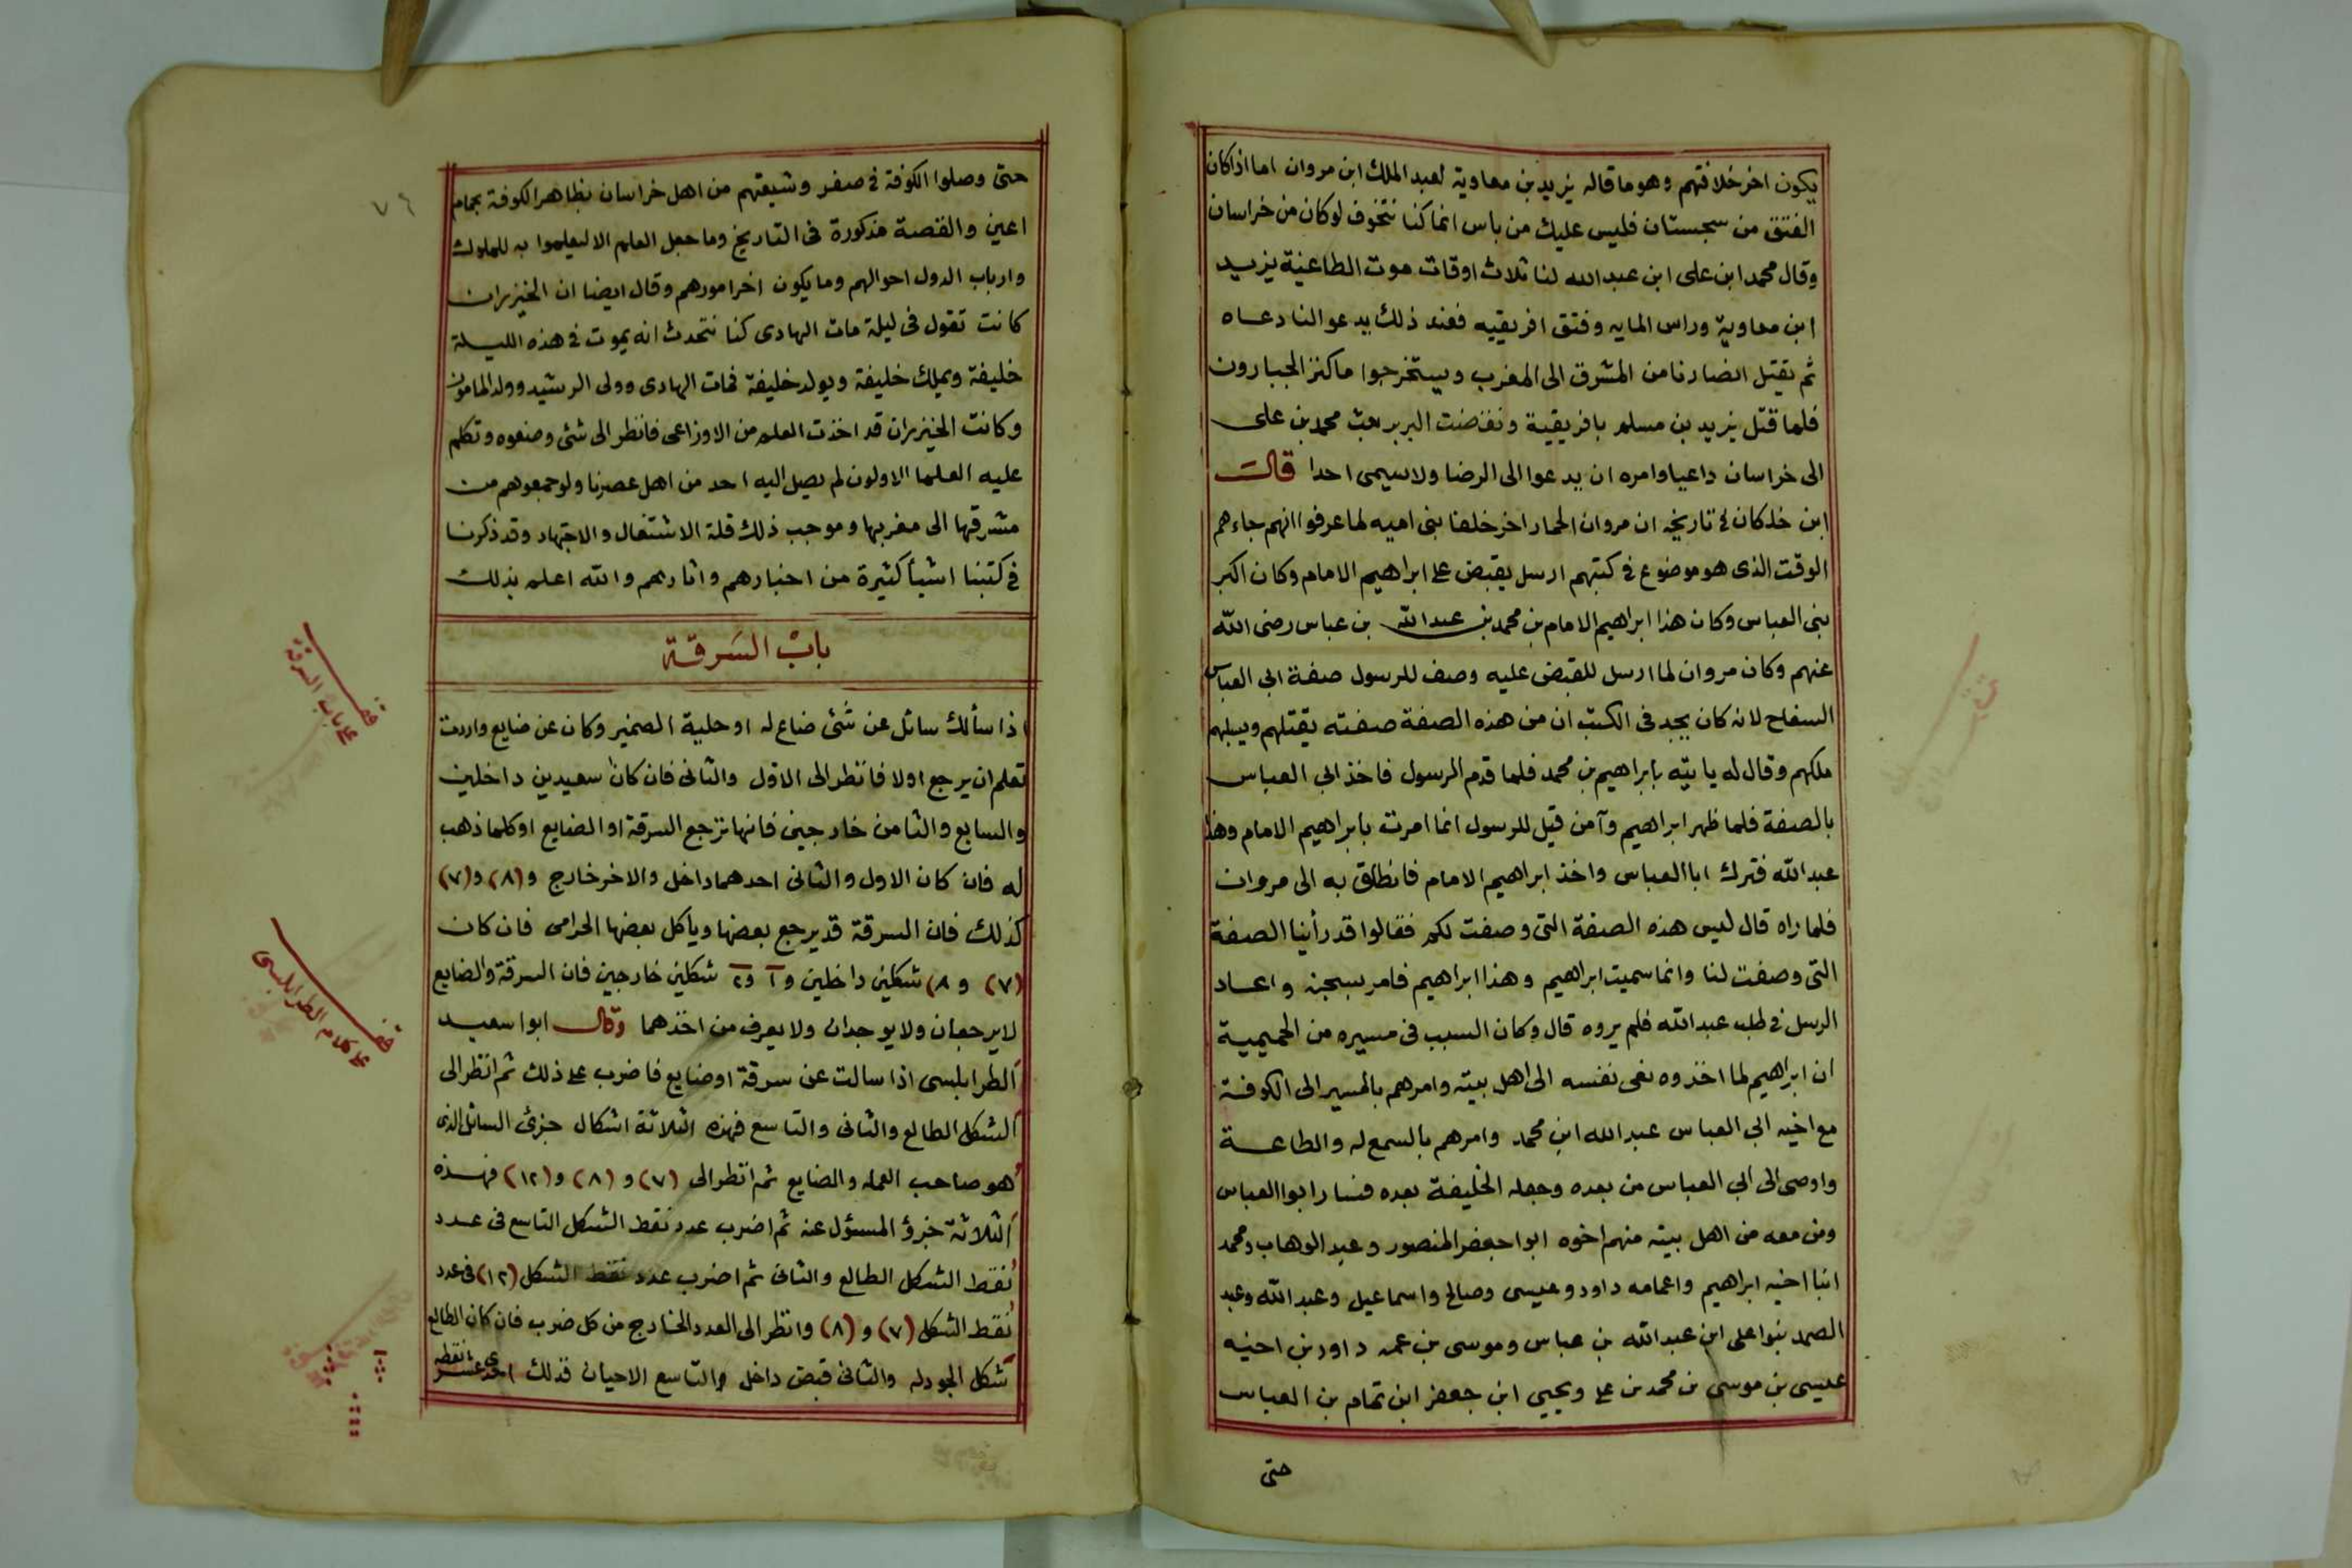 يكون اخر خلافتهم وهو ما قاله يزيد بن معاوية لعبد الملك ابن مروان اما اذا كان
الفتق من سجستان فليس عليك من باس انما كنا نتخوف لو كان من خراسان
وقال محمد ابن على ابن عبد الله لنا ثلاث اوقات موت الطاعنية يزيد
ابن معاوية وراس المايه وفتق افريقيه فعند ذلك يدعو النا دعاه
ثم يقتل انصارنا من المشرق الى المغرب ويستخرجوا ما كنز الجبارون
فلما قتل يزيد بن مسلم بافريقية ونقضت البربر بعث محمد بن على
الى خراسان داعيا وامره ان يدعوا الى الرضا ولا يسمى احدا قالت
ابن خلكان فى تاريخه ان مروان الحمار اخر خلفا بنى اميه لما عرفوا انهم جاءهم
الوقت الذى هو موضوع فى كتبهم ارسل يقبض على ابراهيم الامام وكان اكبر
بنى العباس وكان هذا ابراهيم الامام بن محمد بن عبد الله بن عباس رضى الله
عنهم وكان مروان لما ارسل للقبض عليه وصف للرسول صفة ابى العباس
السفاح لانه كان يجد فى الكتب ان من هذه الصفة صفته يقتلهم ويسلبهم
ملكهم وقال له يا بته بابراهيم بن محمد فلما قدم الرسول فاخذ ابى العباس
بالصفة فلما ظهر ابراهيم وآمن قيل للرسول انما امرت بابراهيم الامام وهذا
عبد الله فترك ابا العباس واخذ ابراهيم الامام فانطلق به الى مروان
فلما راه قال ليس هذه الصفة التى وصفت لكم فقالوا قد رأينا الصفة
التى وصفت لنا وانما سميت ابراهيم وهذا ابراهيم فامر بسجنه واعاد
الرسل فى طلب عبد الله فلم يروه قال وكان السبب فى مسيره من الحميمية
ان ابراهيم لما اخذوه نعى نفسه الى اهل بيته وامرهم بالمسير الى الكوفة
مع اخيه ابى العباس عبد الله ابن محمد وامرهم بالسمع له والطاعة
واوصى الى ابى العباس من بعده وجعله الخليفة بعده فسار ابوا العباس
ومن معه من اهل بيته منهم اخوه ابوا جعفر المنصور وعبد الوهاب ومحمد
ابنا اخيه ابراهيم واعمامه داود وعيسى وصالح واسماعيل وعبد الله وعبد
الصمد بنوا على ابن عبد الله بن عباس وموسى بن عمه داود بن اخيه
عيسى بن موسى بن محمد بن على ويحيى ابن جعفر ابن تمام بن العباس
حتى
٧٦
حتى وصلوا الكوفة فى صفر وشيعتهم من اهل خراسان بظاهر الكوفة بحمام
اعين والقصة مذكورة فى التاريخ وما جعل العلم الا ليعلموا به للملوك
وارباب الدول احوالهم وما يكون اخر امورهم وقال ايضا ان الخيزران
كانت تقول فى ليلة مات الهادى كنا نتحدث انه يموت فى هذه الليلة
خليفة ويملك خليفة ويولد خليفة فمات الهادى وولى الرشيد وولد المامون
وكانت الخيزران قد اخذت العلم من الاوزاعى فانظر الى شئ وصنعوه وتكلم
عليه العلما الاولون لم يصل اليه احد من اهل عصرنا ولو جمعوهم من
مشرقها الى مغربها وموجب ذلك قلة الاشتغال والاجتهاد وقد ذكرنا
فى كتبنا اشيأ كثيرة من اخبارهم واثارهم والله اعلم بذلك
باب السرقة
اذا سألك سائل عن شئ ضاع له او حلية الضمير وكان عن ضايع واردت
تعلم ان يرجع اولا فانظر الى الاول والثانى فان كان سعيدين داخلين
والسابع والثامن خارجين فانها ترجع السرقة او الضايع او كلما ذهب
له فان كان الاول والثانى احدهما داخل والاخر خارج و(٨) و(٧)
كذلك فان السرقة قد يرجع بعضها وياكل بعضها الحرامى فان كان
(٧) و ٨) شكلين داخلين و١ و٢ شكلين خارجين فان السرقة والضايع
لا يرجعان ولا يوجدان ولا يعرف من اخذهما وقال ابوا سعيد
الطرابلسى اذا سالت عن سرقة او ضايع فاضرب على ذلك ثم انظر الى
الشكل الطالع والثانى والتاسع فهذه الثلاثة اشكال جزئ السائل الذى
هو صاحب العمله والضايع ثم انظر الى (٧) و (٨) و (١٢) فهذه
الثلاثة خبزؤ المسؤل عنه ثم اضرب عدد نقط الشكل التاسع فى عدد
نقط الشكل الطالع والثانى ثم اضرب عدد نقط الشكل (١٢) فى عدد
نقط الشكل (٧) و (٨) وانظر الى العدد الخارج من كل ضرب فان كان الطالع
شكل الجودله والثانى قبض داخل والتاسع الاحيان فذلك احدى عشر نقطه
قف على باب السرقة
قف على كلام الطرابلسى